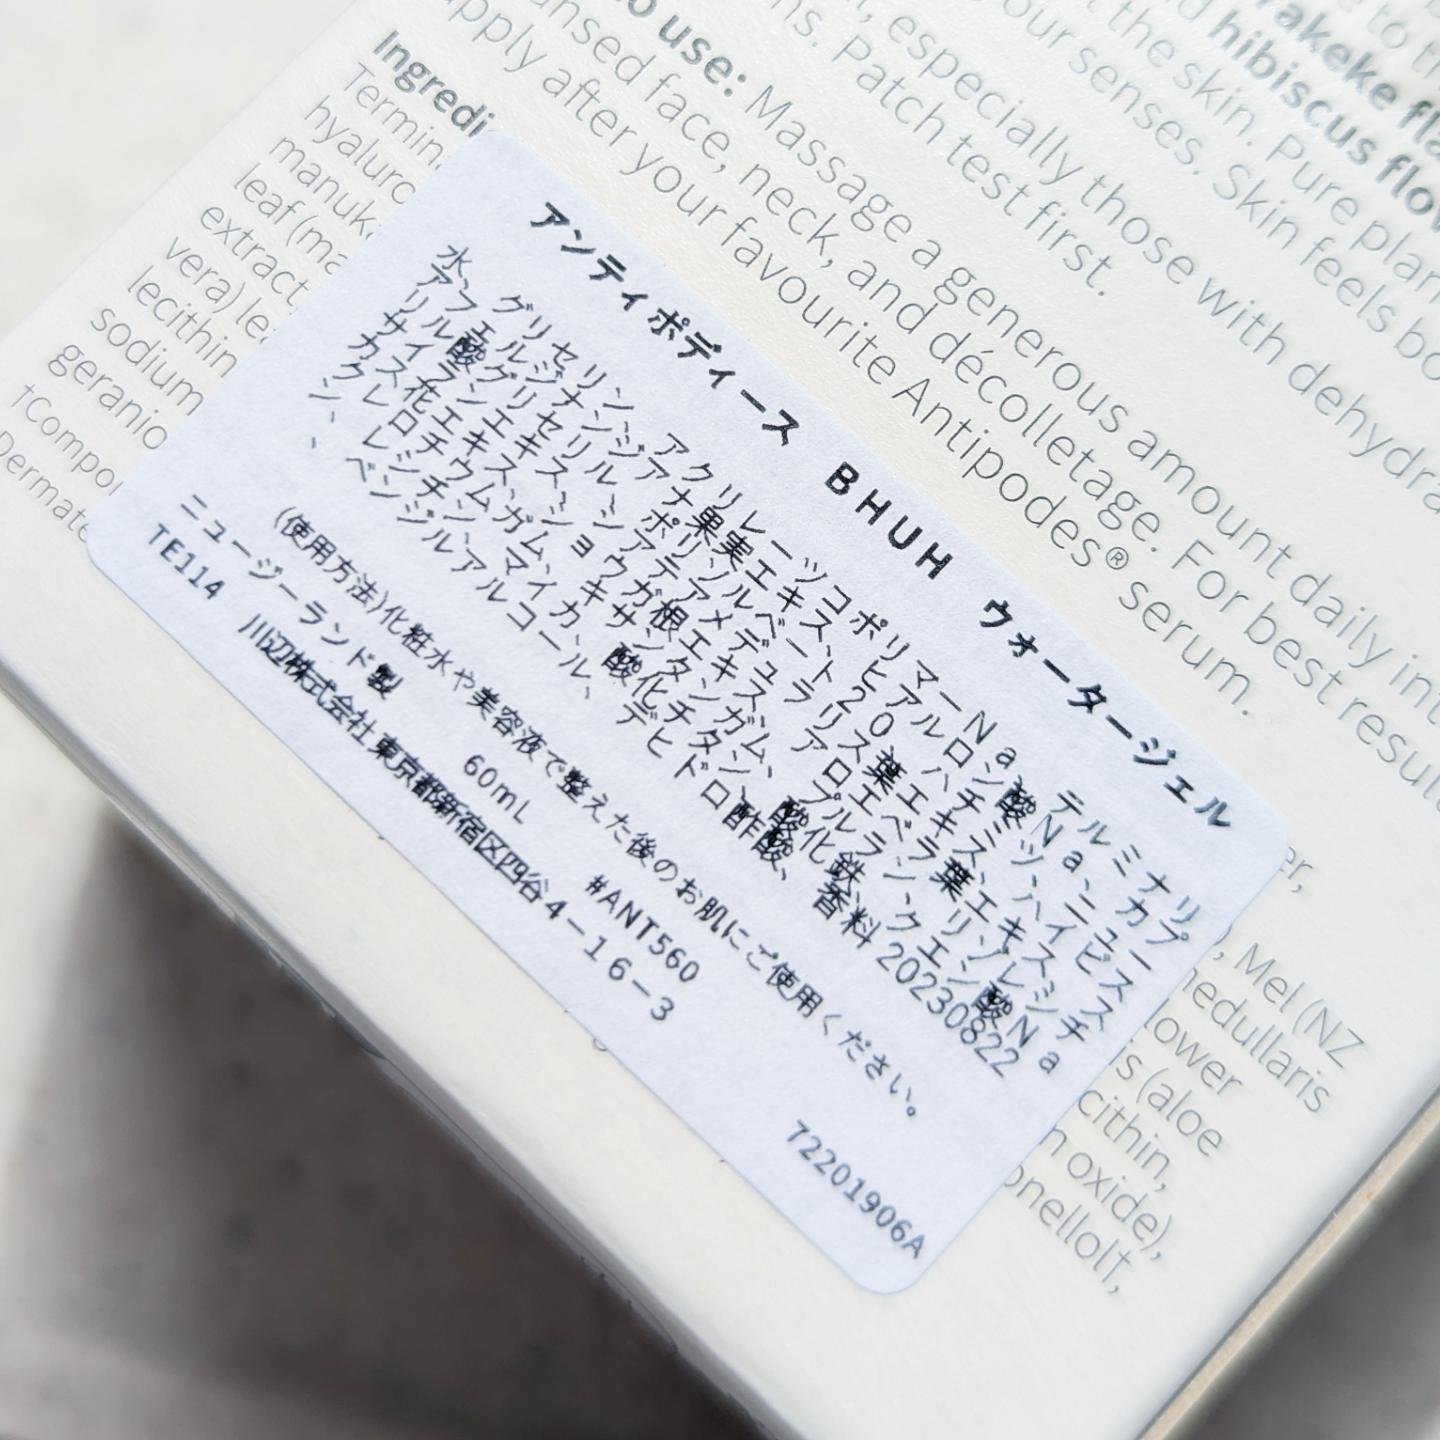 rakeke fla
hibiscus flow
the skin. Pure plan
your senses. Skin feels bo
, especially those with dehydra
ns. Patch test first.
o use: Massage a generous amount daily int
nsed face, neck, and décolletage. For best resul
apply after your favourite Antipodes® serum.
Ingredi
Termin
hyaluro
manuka
leaf (ma
extract
vera) le
lecithin
sodium
geranio
†Compo
Dermate
アンティポディース BHUH ウォータージェル
水、グリセリン、アクリレーツコポリマーNa、テルミナリ
アフェルジナンジアナ果実エキス、ヒアルロン酸Na、カプ
リル酸グリセリル、ポリソルベート20、ハチミツ、ニュー
サイランエキス、シアテアメデュラリス葉エキス、ハイビス
カス花エキス、ショウガ根エキス、アロエベラ葉エキス、ス
クレロチウムガム、キサンタンガム、プルラン、リゾレシチ
ン、レシチン、マイカ、酸化チタン、酸化鉄、クエン酸Na
、ベンジルアルコール、デヒドロ酢酸、香料 20230822
(使用方法)化粧水や美容液で整えた後のお肌にご使用ください。
ニュージーランド製 60mL #ANT560
TE114 川辺株式会社東京都新宿区四谷4－16－3
72201906A
er,
, Mel (NZ
medullaris
lower
s (aloe
cithin,
n oxide),
onellol†,